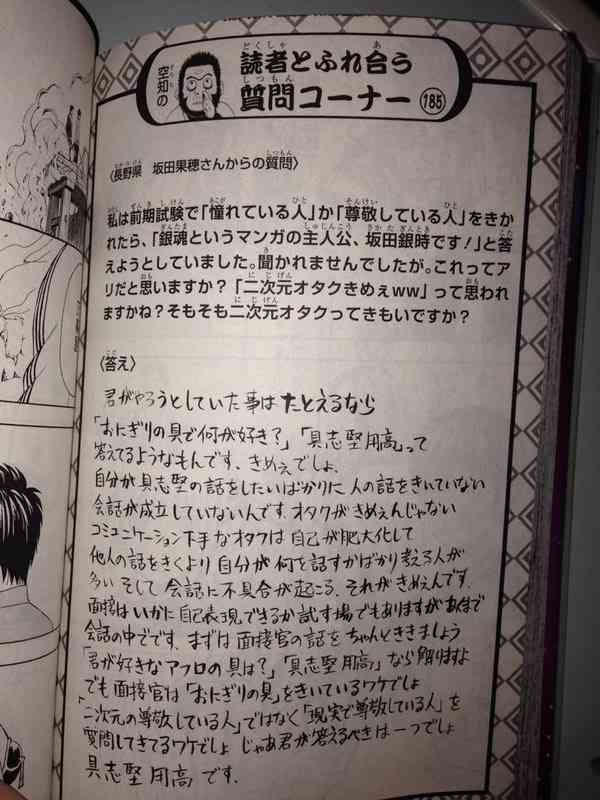 空知の
読者とふれ合う
質問コーナー 185
〈長野県 坂田果穂さんからの質問〉
私は前期試験で「憧れている人」か「尊敬している人」をきか
れたら、「銀魂というマンガの主人公、坂田銀時です!」と答
えようとしていました。聞かれませんでしたが。これってア
リだと思いますか?「二次元オタクきめぇww」って思われ
ますかね?そもそも二次元オタクってきもいですか?
〈答え〉
君がやろうとしていた事はたとえるなら
「おにぎりの具で何が好き?」「具志堅用高」って
答えてるようなもんです、きめぇでしょ、
自分が具志堅の話をしたいばかりに人の話をきいていない
会話が成立していないんです、オタクがきめぇんじゃない
コミュニケーション下手なオタクは自己が肥大化して
他人の話をきくより自分が何を話すかばかり考える人が
多いそして会話に不具合が起こる、それがきめぇんです、
面接はいかに自己表現できるか試す場でもありますがあくまで
会話の中でです、まずは面接官の話をちゃんとききましょう
「君が好きなアフロの具は?」「具志堅用高」なら解りますよ
でも面接官は「おにぎりの具」をきいているワケでしょ
「二次元の尊敬している人」ではなく「現実で尊敬している人」を
質問してきてるワケでしょ じゃあ君が答えるべきは一つでしょ
具志堅用高です、